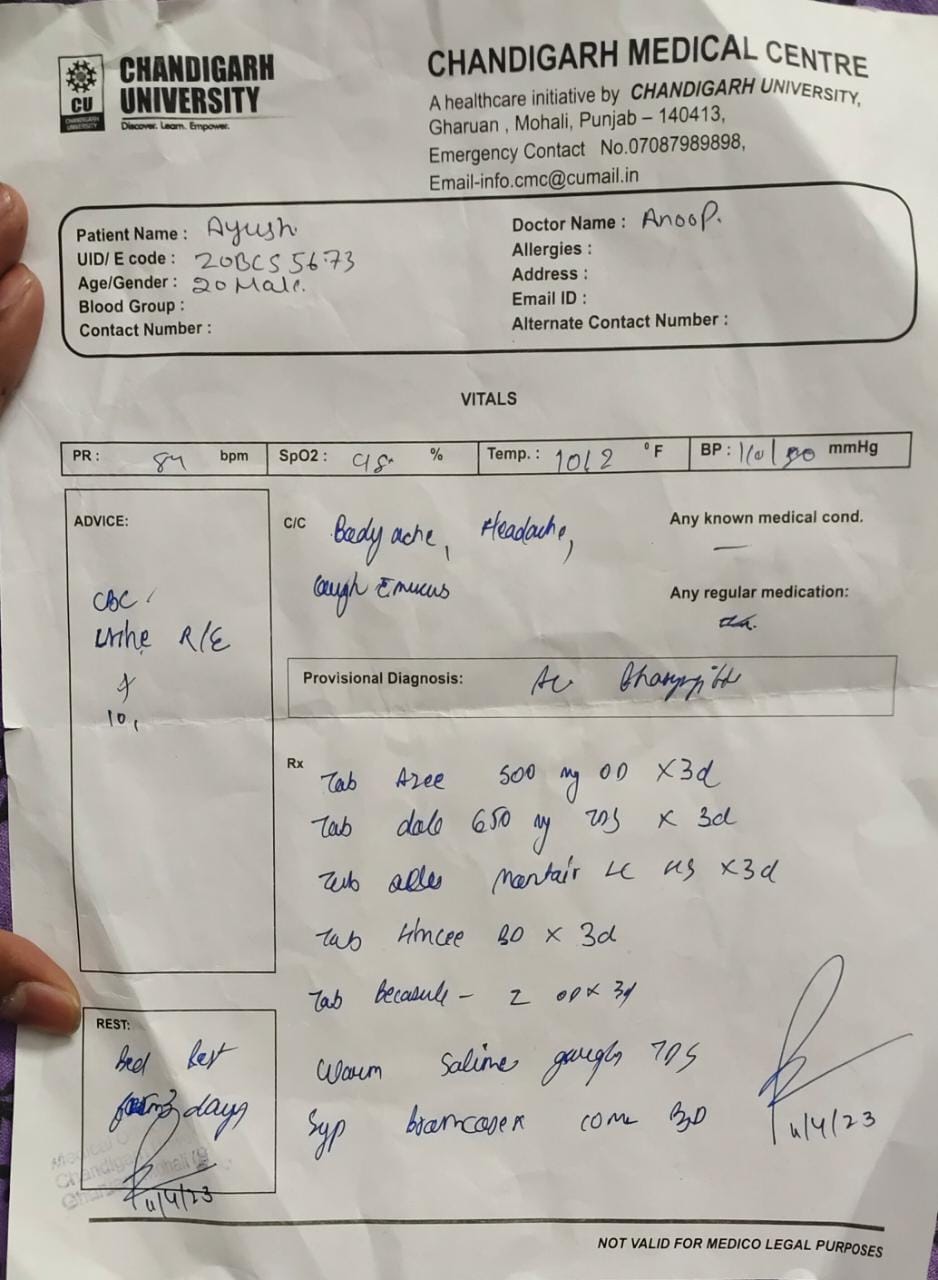 CU
CHANDIGARH UNIVERSITY
CHANDIGARH
UNIVERSITY
Discover. Learn. Empower.
CHANDIGARH MEDICAL CENTRE
A healthcare initiative by CHANDIGARH UNIVERSITY,
Gharuan , Mohali, Punjab – 140413,
Emergency Contact No.07087989898,
Email-info.cmc@cumail.in
Patient Name : Ayush
UID/ E code : 20BCS5673
Age/Gender : 20 Male.
Blood Group :
Contact Number :
Doctor Name : Anoop.
Allergies :
Address :
Email ID :
Alternate Contact Number :
VITALS
PR : 84 bpm
SpO2 : 98 %
Temp. : 101.2 °F
BP : mmHg
ADVICE:
CBC
Urine R/E
C/C Body ache, Headache,
cough c mucus
Any known medical cond.
—
Any regular medication:
Provisional Diagnosis: Ac Pharyngitis
Rx
Tab Azee 500 mg OD X3d
Tab dolo 650 mg TDS X 3d
Tab Montair LC HS X3d
Tab Limcee BD X 3d
Tab Becasule - Z OD X 3d
Warm Saline gargles TDS
Syp BD
REST:
Bed Rest
3 days
11/4/23
11/4/23
NOT VALID FOR MEDICO LEGAL PURPOSES